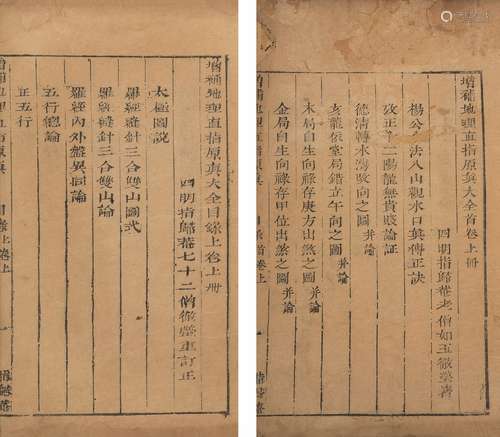 增補地理直指原真大全首卷上冊
四明指歸菴老僧如玉徹瑩著
楊公入法八山觀水口真傳正訣
攷正十二陽龍無貴賤論証
德清轉水灣改向之圖 并論
亥龍依堂局錯立午向之圖 并論
木局自生向祿存庚方出煞之圖 并論
金局自生向祿存甲位出煞之圖 并論
目錄 首卷上
增補地理直指原真大全目錄上卷上冊
四明指歸菴七十二僧徹瑩重訂正
太極圖說
羅經縫針三合雙山圖式
羅經縫針三合雙山論
羅經內外盤異同論
五行總論
正五行
目錄上卷上